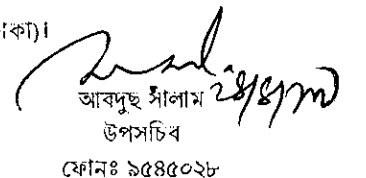 কা)।
আবদুছ সালাম
উপসচিব
ফোনঃ ৯৫৪৫০২৮